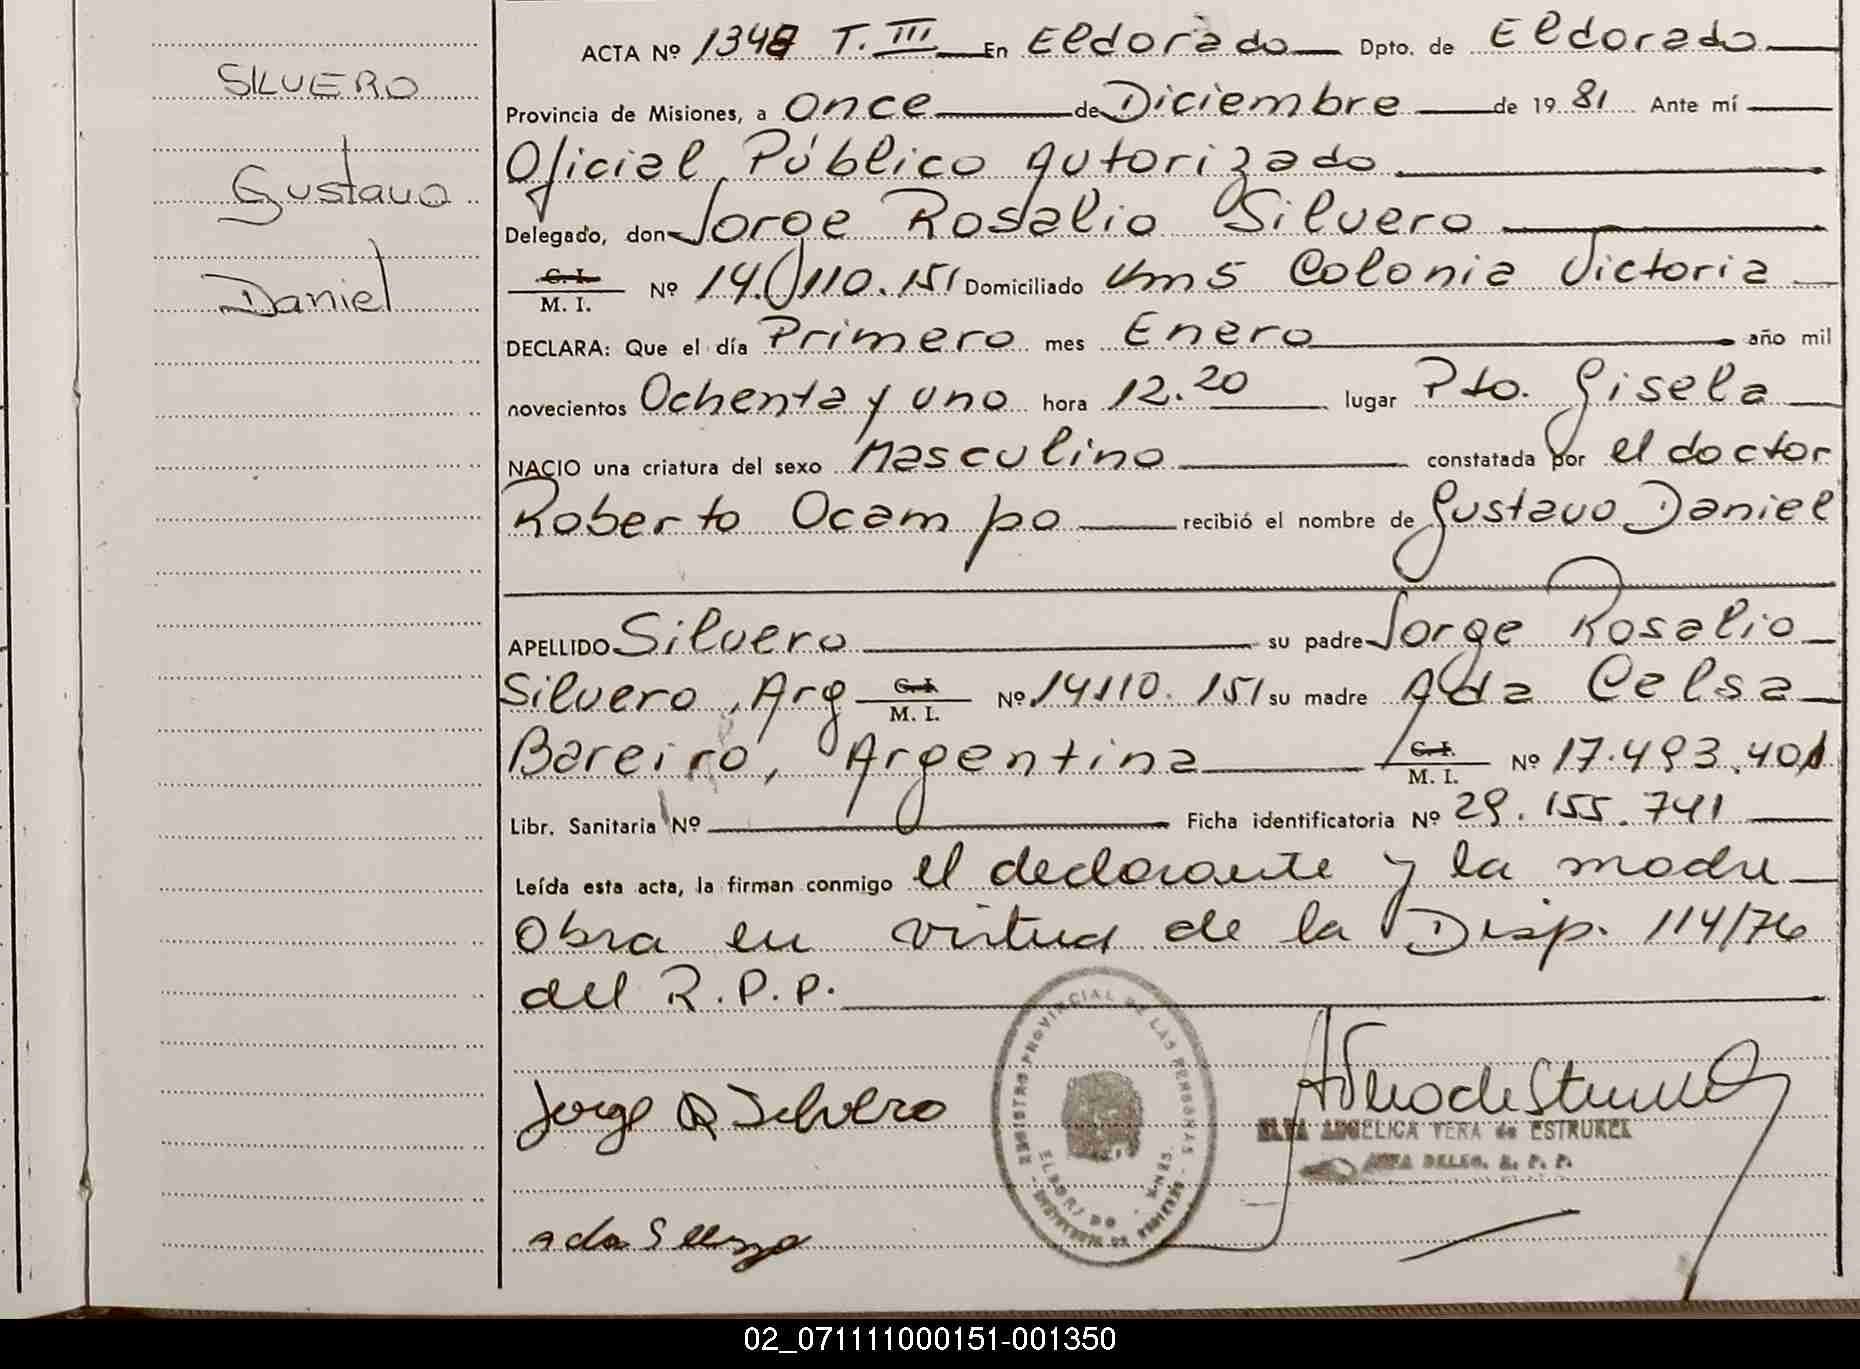 SILVERO
Gustavo
Daniel
ACTA Nº 1348 T. III En Eldorado Dpto. de Eldorado
Provincia de Misiones, a once de Diciembre de 19 81 Ante mí
Oficial Público Autorizado
Delegado, don Jorge Rosalio Silvero
C. I.
M. I. Nº 14.110.151 Domiciliado Km 5 Colonia Victoria
DECLARA: Que el día Primero mes Enero año mil
novecientos Ochenta y uno hora 12.20 lugar Pto. Gisela
NACIO una criatura del sexo Masculino constatada por el doctor
Roberto Ocampo recibió el nombre de Gustavo Daniel
APELLIDO Silvero su padre Jorge Rosalio
Silvero, Arg C. I. M. I. Nº 14110.151 su madre Ada Celsa
Bareiro, Argentina C. I. M. I. Nº 17.493.401
Libr. Sanitaria Nº Ficha identificatoria Nº 29.155.741
Leída esta acta, la firman conmigo el declarante y la madre
Obra en virtud de la Disp. 114/76
del R.P.P.
REGISTRO PROVINCIAL DE LAS PERSONAS
ELDORADO - MNES.
Jorge R Silvero
ELVA ANGELICA VERA de ESTRUKEL
DELEG. R. P. P.
02_071111000151-001350